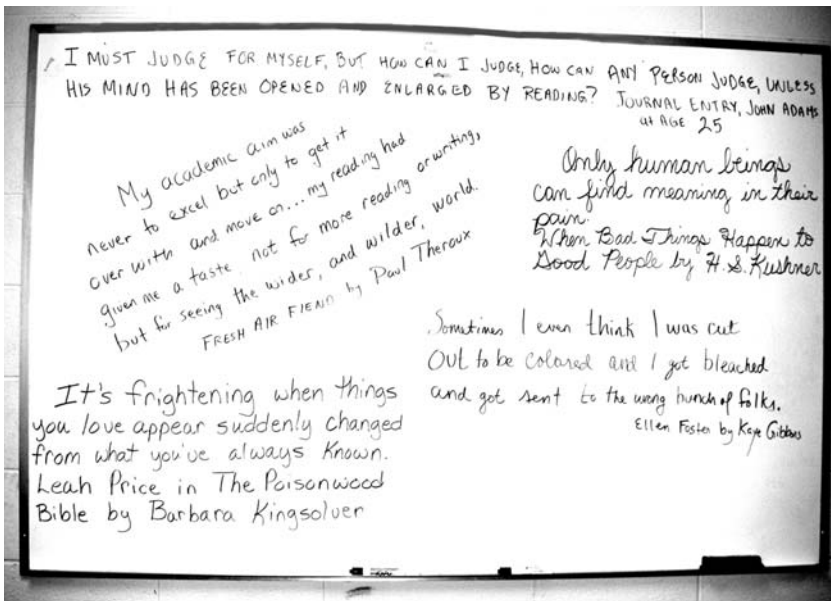 I MUST JUDGE FOR MYSELF, BUT HOW CAN I JUDGE, HOW CAN ANY PERSON JUDGE, UNLESS
HIS MIND HAS BEEN OPENED AND ENLARGED BY READING? JOURNAL ENTRY, JOHN ADAMS
at AGE 25
My academic aim was
never to excel but only to get it
over with and move on... my reading had
given me a taste not for more reading or writing,
but for seeing the wider, and wilder, world.
FRESH AIR FIEND by Paul Theroux
Only human beings
can find meaning in their
pain.
When Bad Things Happen to
Good People by H. S. Kushner
Sometimes I even think I was cut
OUT to be colored and I got bleached
and got sent to the wrong bunch of folks.
Ellen Foster by Kaye Gibbons
It's frightening when things
you love appear suddenly changed
from what you've always known.
Leah Price in The Poisonwood
Bible by Barbara Kingsolver